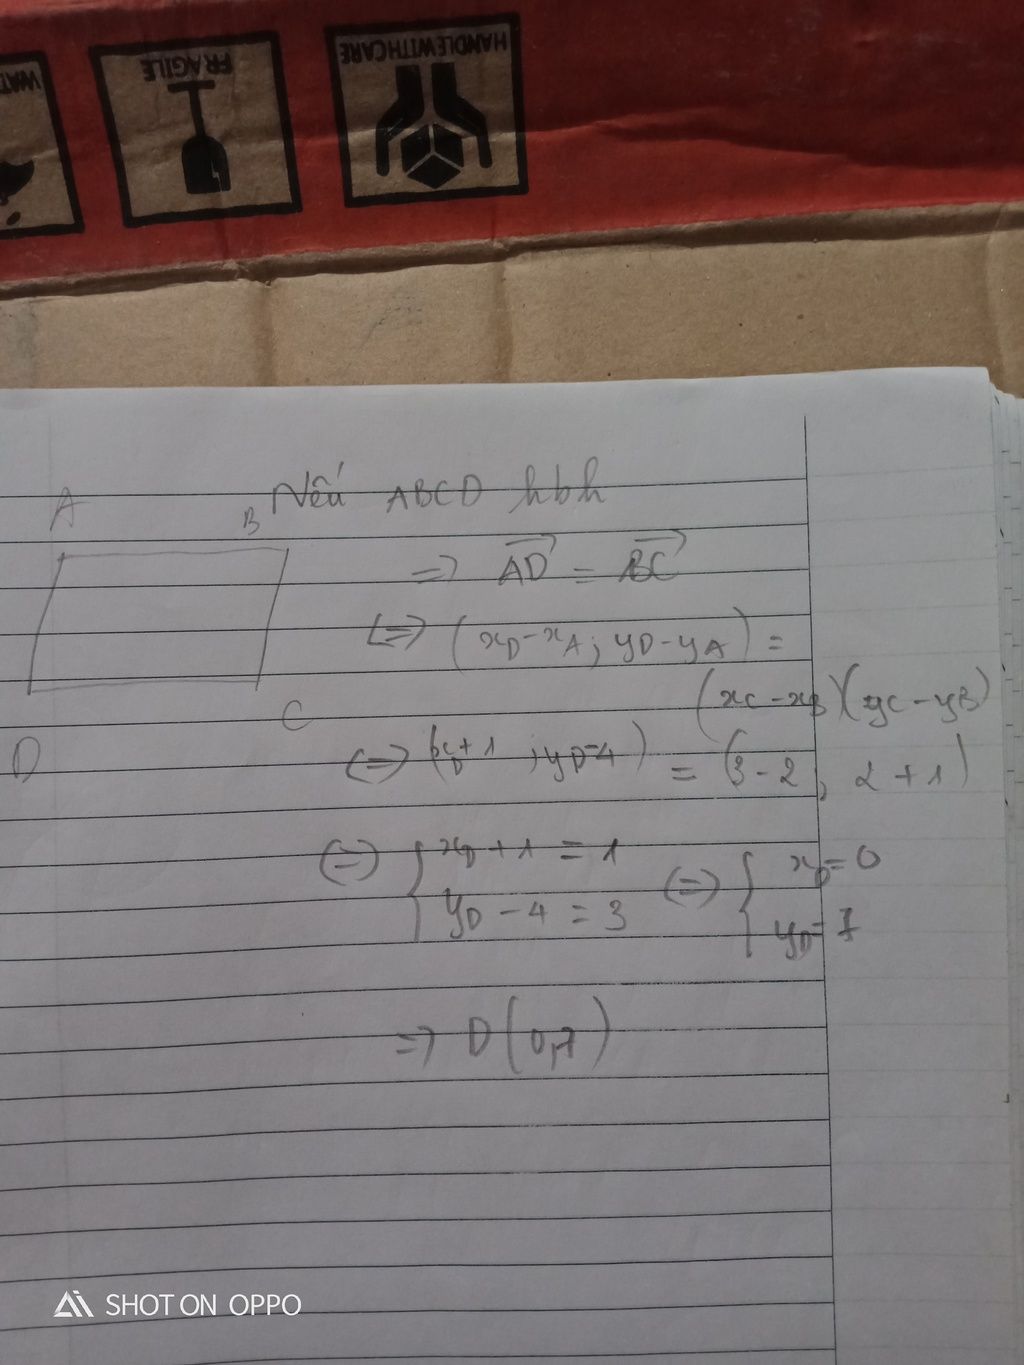 WAT
FRAGILE
HANDLE WITH CARE
A B Nếu ABCD hbh
=> AD = BC
<=> (xD - xA ; yD - yA) =
(xC - xB)(yC - yB)
D C <=> (xD + 1 ; yD - 4) = (3 - 2 , 2 + 1)
<=> { xD + 1 = 1 <=> { xD = 0
yD - 4 = 3 yD = 7
=> D (0,7)
SHOT ON OPPO